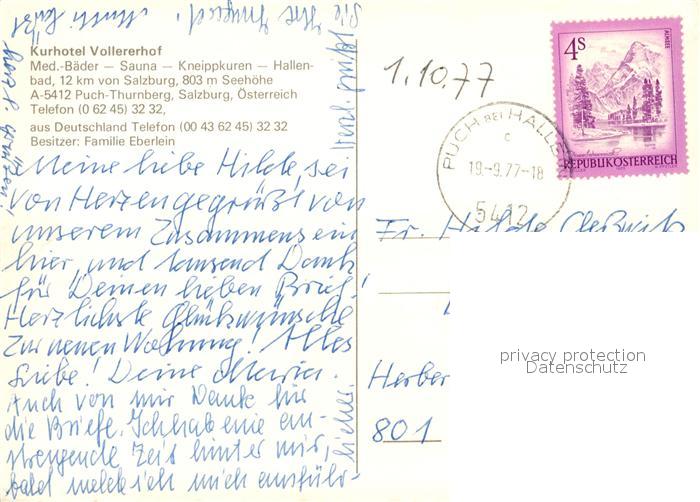 Kurhotel Vollererhof
Med.-Bäder — Sauna — Kneippkuren — Hallen-
bad, 12 km von Salzburg, 803 m Seehöhe
A-5412 Puch-Thurnberg, Salzburg, Österreich
Telefon (0 62 45) 32 32,
aus Deutschland Telefon (00 43 62 45) 32 32
Besitzer: Familie Eberlein
Meine liebe Hilde, sei
von Herzen gegrüßt von
unserem Zusammensein
hier, und tausend Dank
für Deinen lieben Brief!
Herzlichste Glückwünsche
zur neuen Wohnung! Alles
Liebe! Deine Maria.
Auch von mir Dank für
die Briefe. Ich habe eine an-
strengende Zeit hinter mir,
bald melde ich mich ausführ-
licher.
Sie
Ihre
läßt
herzl. grüßen!
1.10.77
PUCH BEI HALLEIN
c
19.-9.77-18
5412
4S
ALMSEE
REPUBLIK ÖSTERREICH
Fr. Hilde
Herber
801
privacy protection
Datenschutz